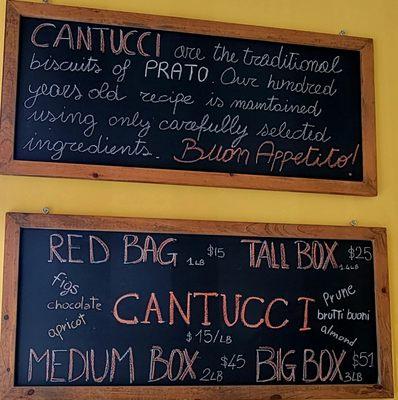 CANTUCCI are the traditional
biscuits of PRATO. Our hundred
years old recipe is maintained
using only carefully selected
ingredients. Buon Appetito!
RED BAG 1LB $15 TALL BOX 1.4LB $25
figs
chocolate
apricot
CANTUCCI
$15/LB
prune
brutti buoni
almond
MEDIUM BOX 2LB $45 BIG BOX 3LB $51